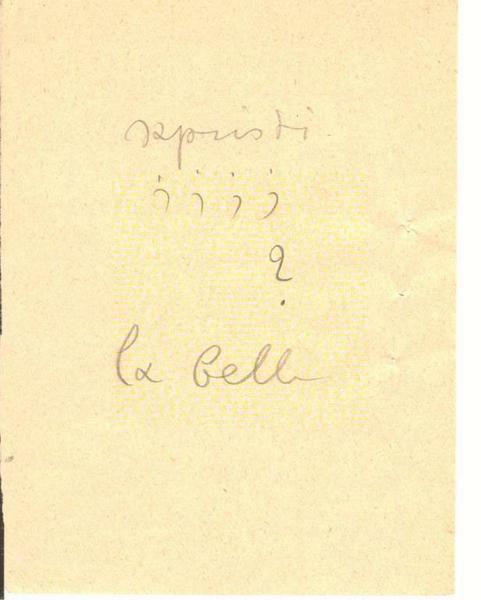 sapristi
; ; ; ;
?
la belle